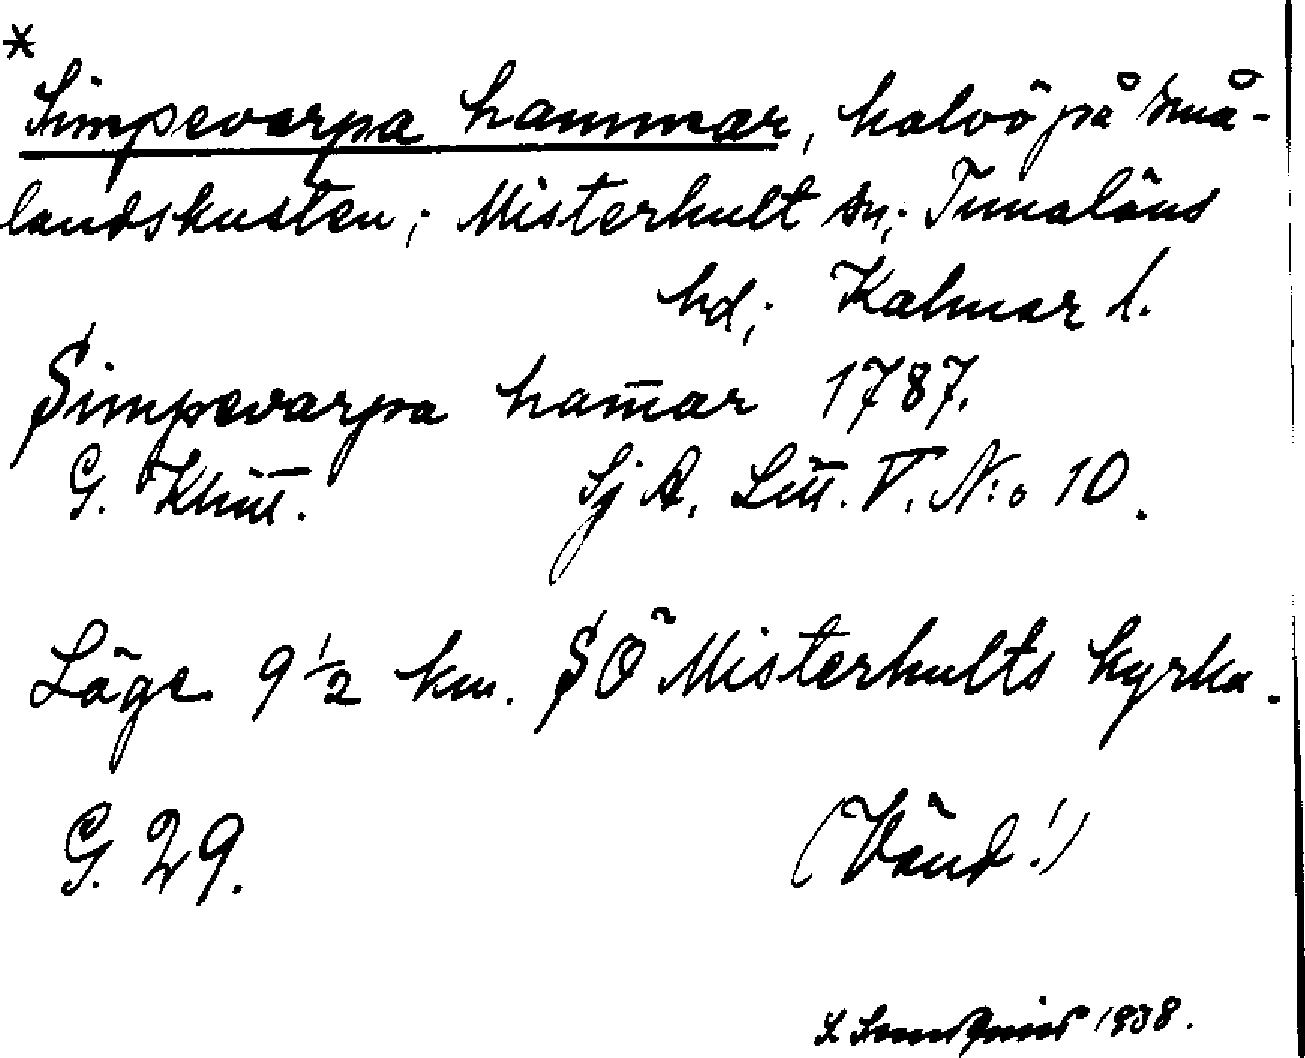 *
Simpevarpa hammar, halvö på små-
landskusten; Misterhult sn; Tunaläns
hd; Kalmar l.
Simpevarpa ham̄ar 1787.
G. Klint. Sj A. Litt. V. N:o 10.
Läge 9 1/2 km. SÖ Misterhults kyrka.
G. 29. (Vänd!)
1938.